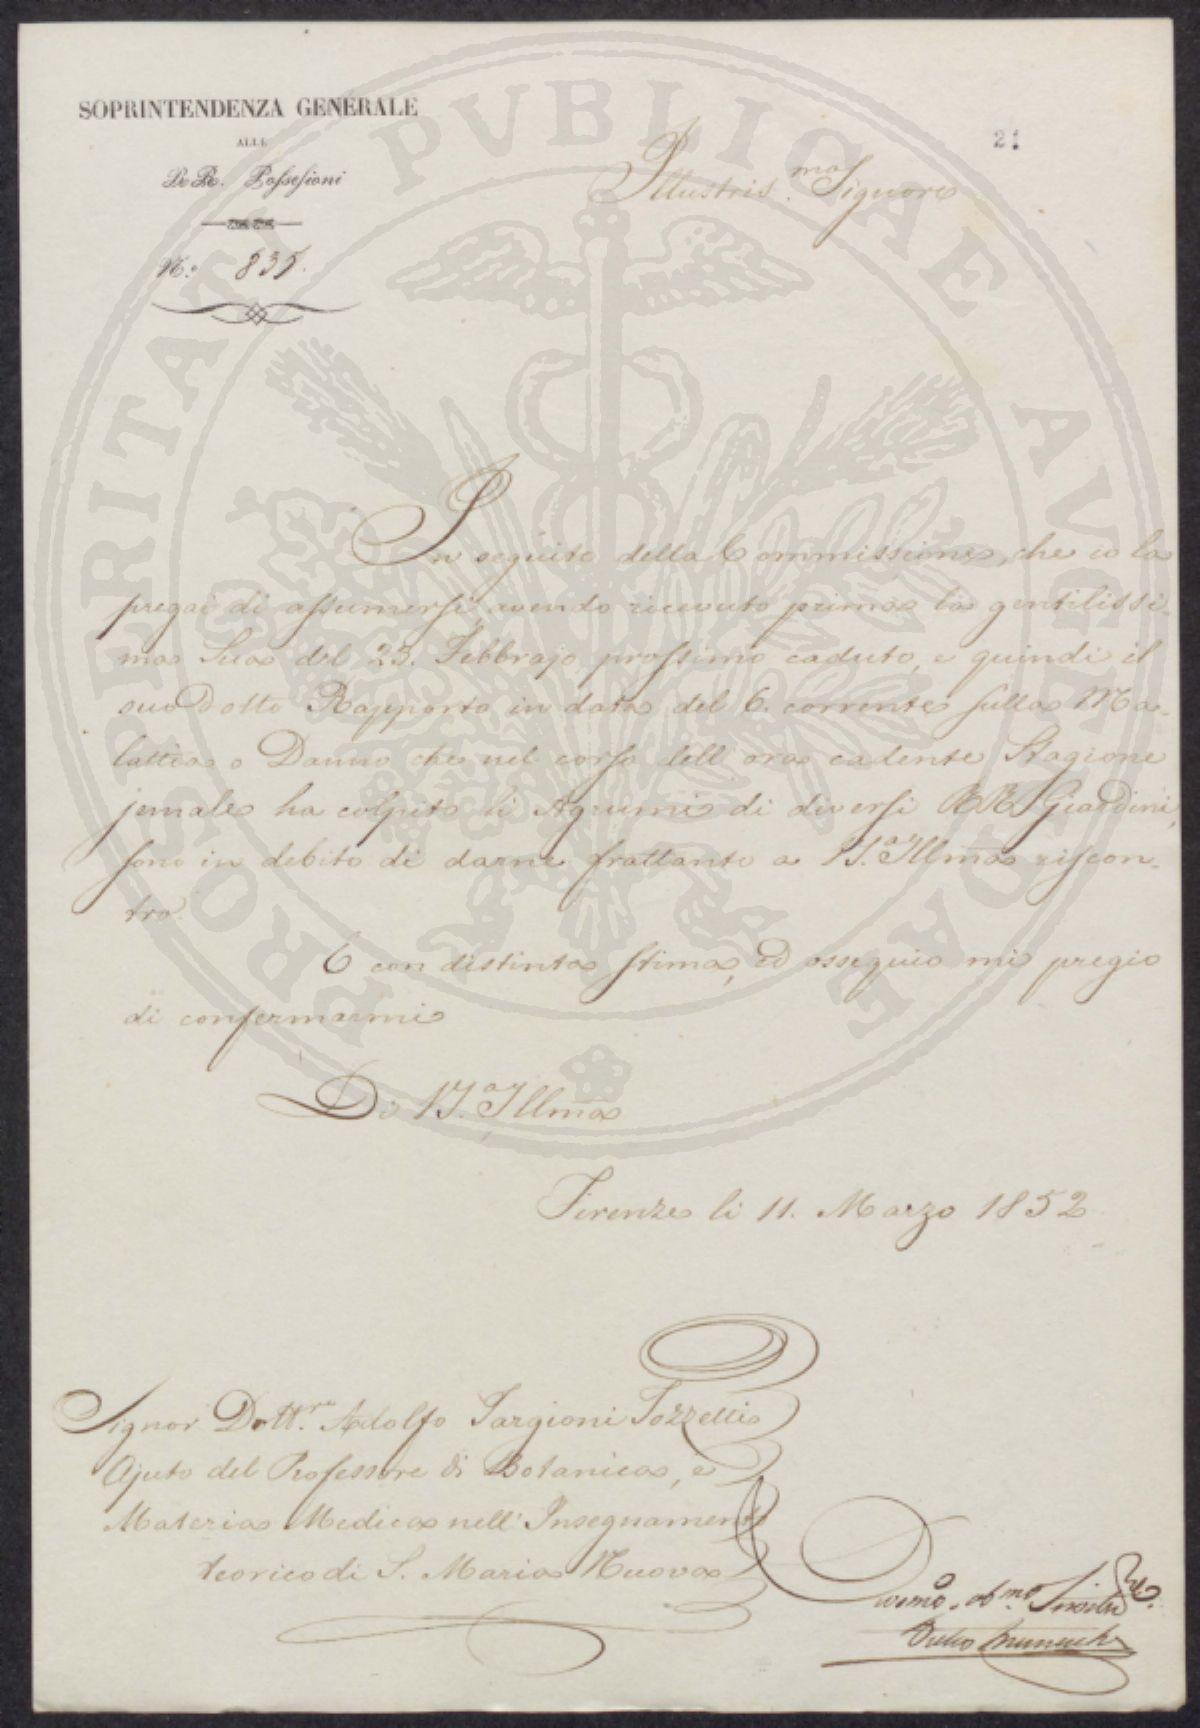 SOPRINTENDENZA GENERALE
ALLE
RR. Possessioni
N.º 835.
21
Illustris.mo Signore
In seguito della Commissione, che io la
pregai di assumersi, avendo ricevuto prima la gentilissi-
ma Sua del 23. Febbrajo prossimo caduto, e quindi il
suo Dotto Rapporto in data del 6. corrente sulla Ma-
lattia o Danno che nel corso dell'ora cadente Stagione
jemale ha colpito li Agrumi di diversi RR. Giardini,
sono in debito di darne frattanto a V.S. Illma riscon-
tro.
E con distinta stima, ed ossequio mi pregio
di confermarmi
Di V.S. Illma
Firenze li 11. Marzo 1852
Signor Dott.re Adolfo Targioni Tozzetti
Ajuto del Professore di Botanica, e
Materia Medica nell'Insegnamento
teorico di S. Maria Nuova
Devmo. ob.mo Servitore
PROSPERITATI PVBLICAE AVGENDAE